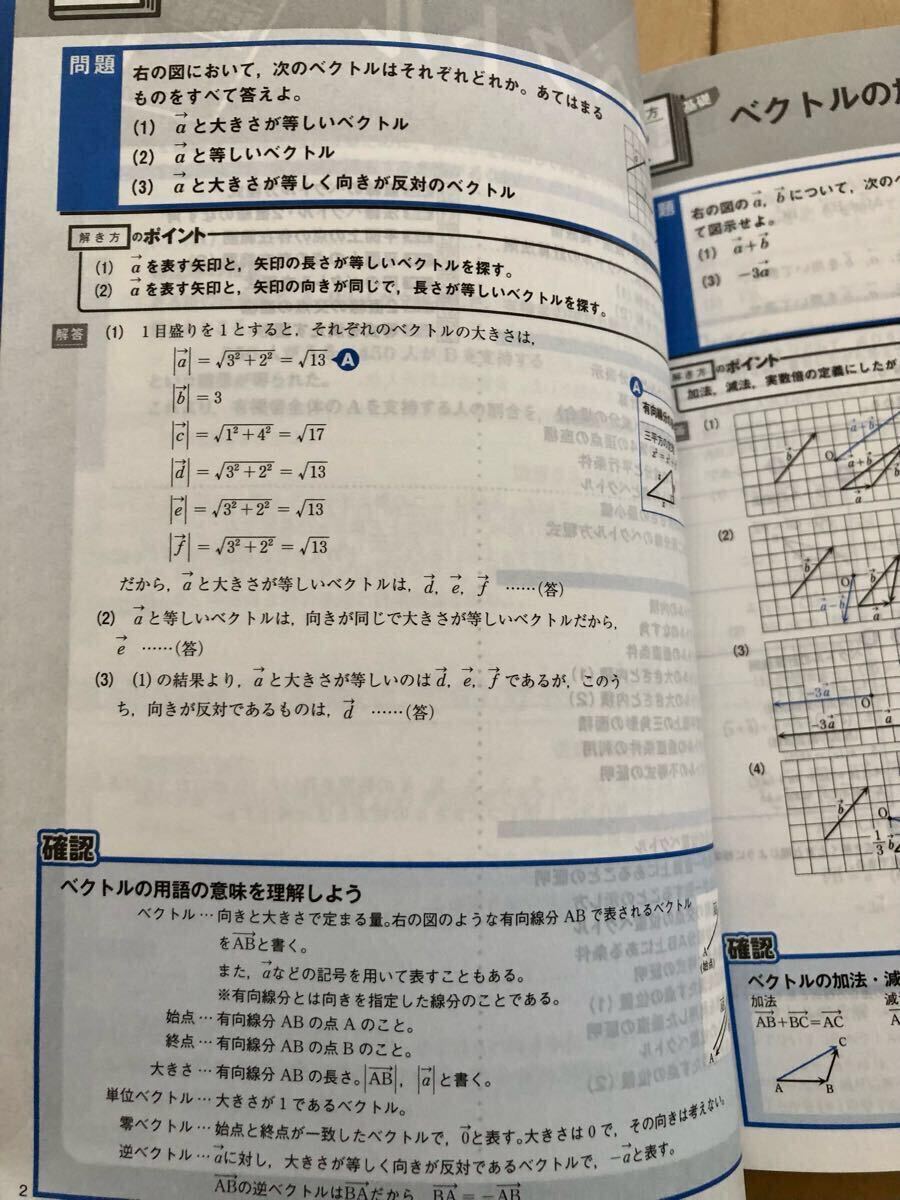 問題
右の図において，次のベクトルはそれぞれどれか。あてはまる
ものをすべて答えよ。
(1) →a と大きさが等しいベクトル
(2) →a と等しいベクトル
(3) →a と大きさが等しく向きが反対のベクトル
解き方のポイント
(1) →a を表す矢印と，矢印の長さが等しいベクトルを探す。
(2) →a を表す矢印と，矢印の向きが同じで，長さが等しいベクトルを探す。
解答
(1) 1目盛りを1とすると，それぞれのベクトルの大きさは，
|→a| = √(3²+2²) = √13 A
|→b| = 3
|→c| = √(1²+4²) = √17
|→d| = √(3²+2²) = √13
|→e| = √(3²+2²) = √13
|→f| = √(3²+2²) = √13
だから，→a と大きさが等しいベクトルは，→d，→e，→f ……(答)
(2) →a と等しいベクトルは，向きが同じで大きさが等しいベクトルだから，
→e ……(答)
(3) (1)の結果より，→a と大きさが等しいのは →d，→e，→f であるが，このう
ち，向きが反対であるものは，→d ……(答)
A
有向線分の
三平方の定
確認
ベクトルの用語の意味を理解しよう
ベクトル … 向きと大きさで定まる量。右の図のような有向線分 AB で表されるベクトル
を→AB と書く。
また，→a などの記号を用いて表すこともある。
※有向線分とは向きを指定した線分のことである。
始点 … 有向線分 AB の点 A のこと。
終点 … 有向線分 AB の点 B のこと。
大きさ … 有向線分 AB の長さ。|→AB|，|→a| と書く。
単位ベクトル … 大きさが 1 であるベクトル。
零ベクトル … 始点と終点が一致したベクトルで，→0 と表す。大きさは 0 で，その向きは考えない。
逆ベクトル … →a に対し，大きさが等しく向きが反対であるベクトルで，−→a と表す。
→AB の逆ベクトルは →BA だから，→BA = −→AB
A
(始点)
A
2
方
基礎
ベクトルの
題
右の図の →a，→b について，次のベ
て図示せよ。
(1) →a+→b
(3) −3→a
解き方のポイント
加法，減法，実数倍の定義にしたが
(1)
→b
O
→a+→b
→a+→b
→b
→a
(2)
→b
O
→a−→b
→a
(3)
−3→a
O
−3→a
(4)
→b
O
1/3 →b
確認
ベクトルの加法・減
加法
→AB+→BC=→AC
減
A
B
C